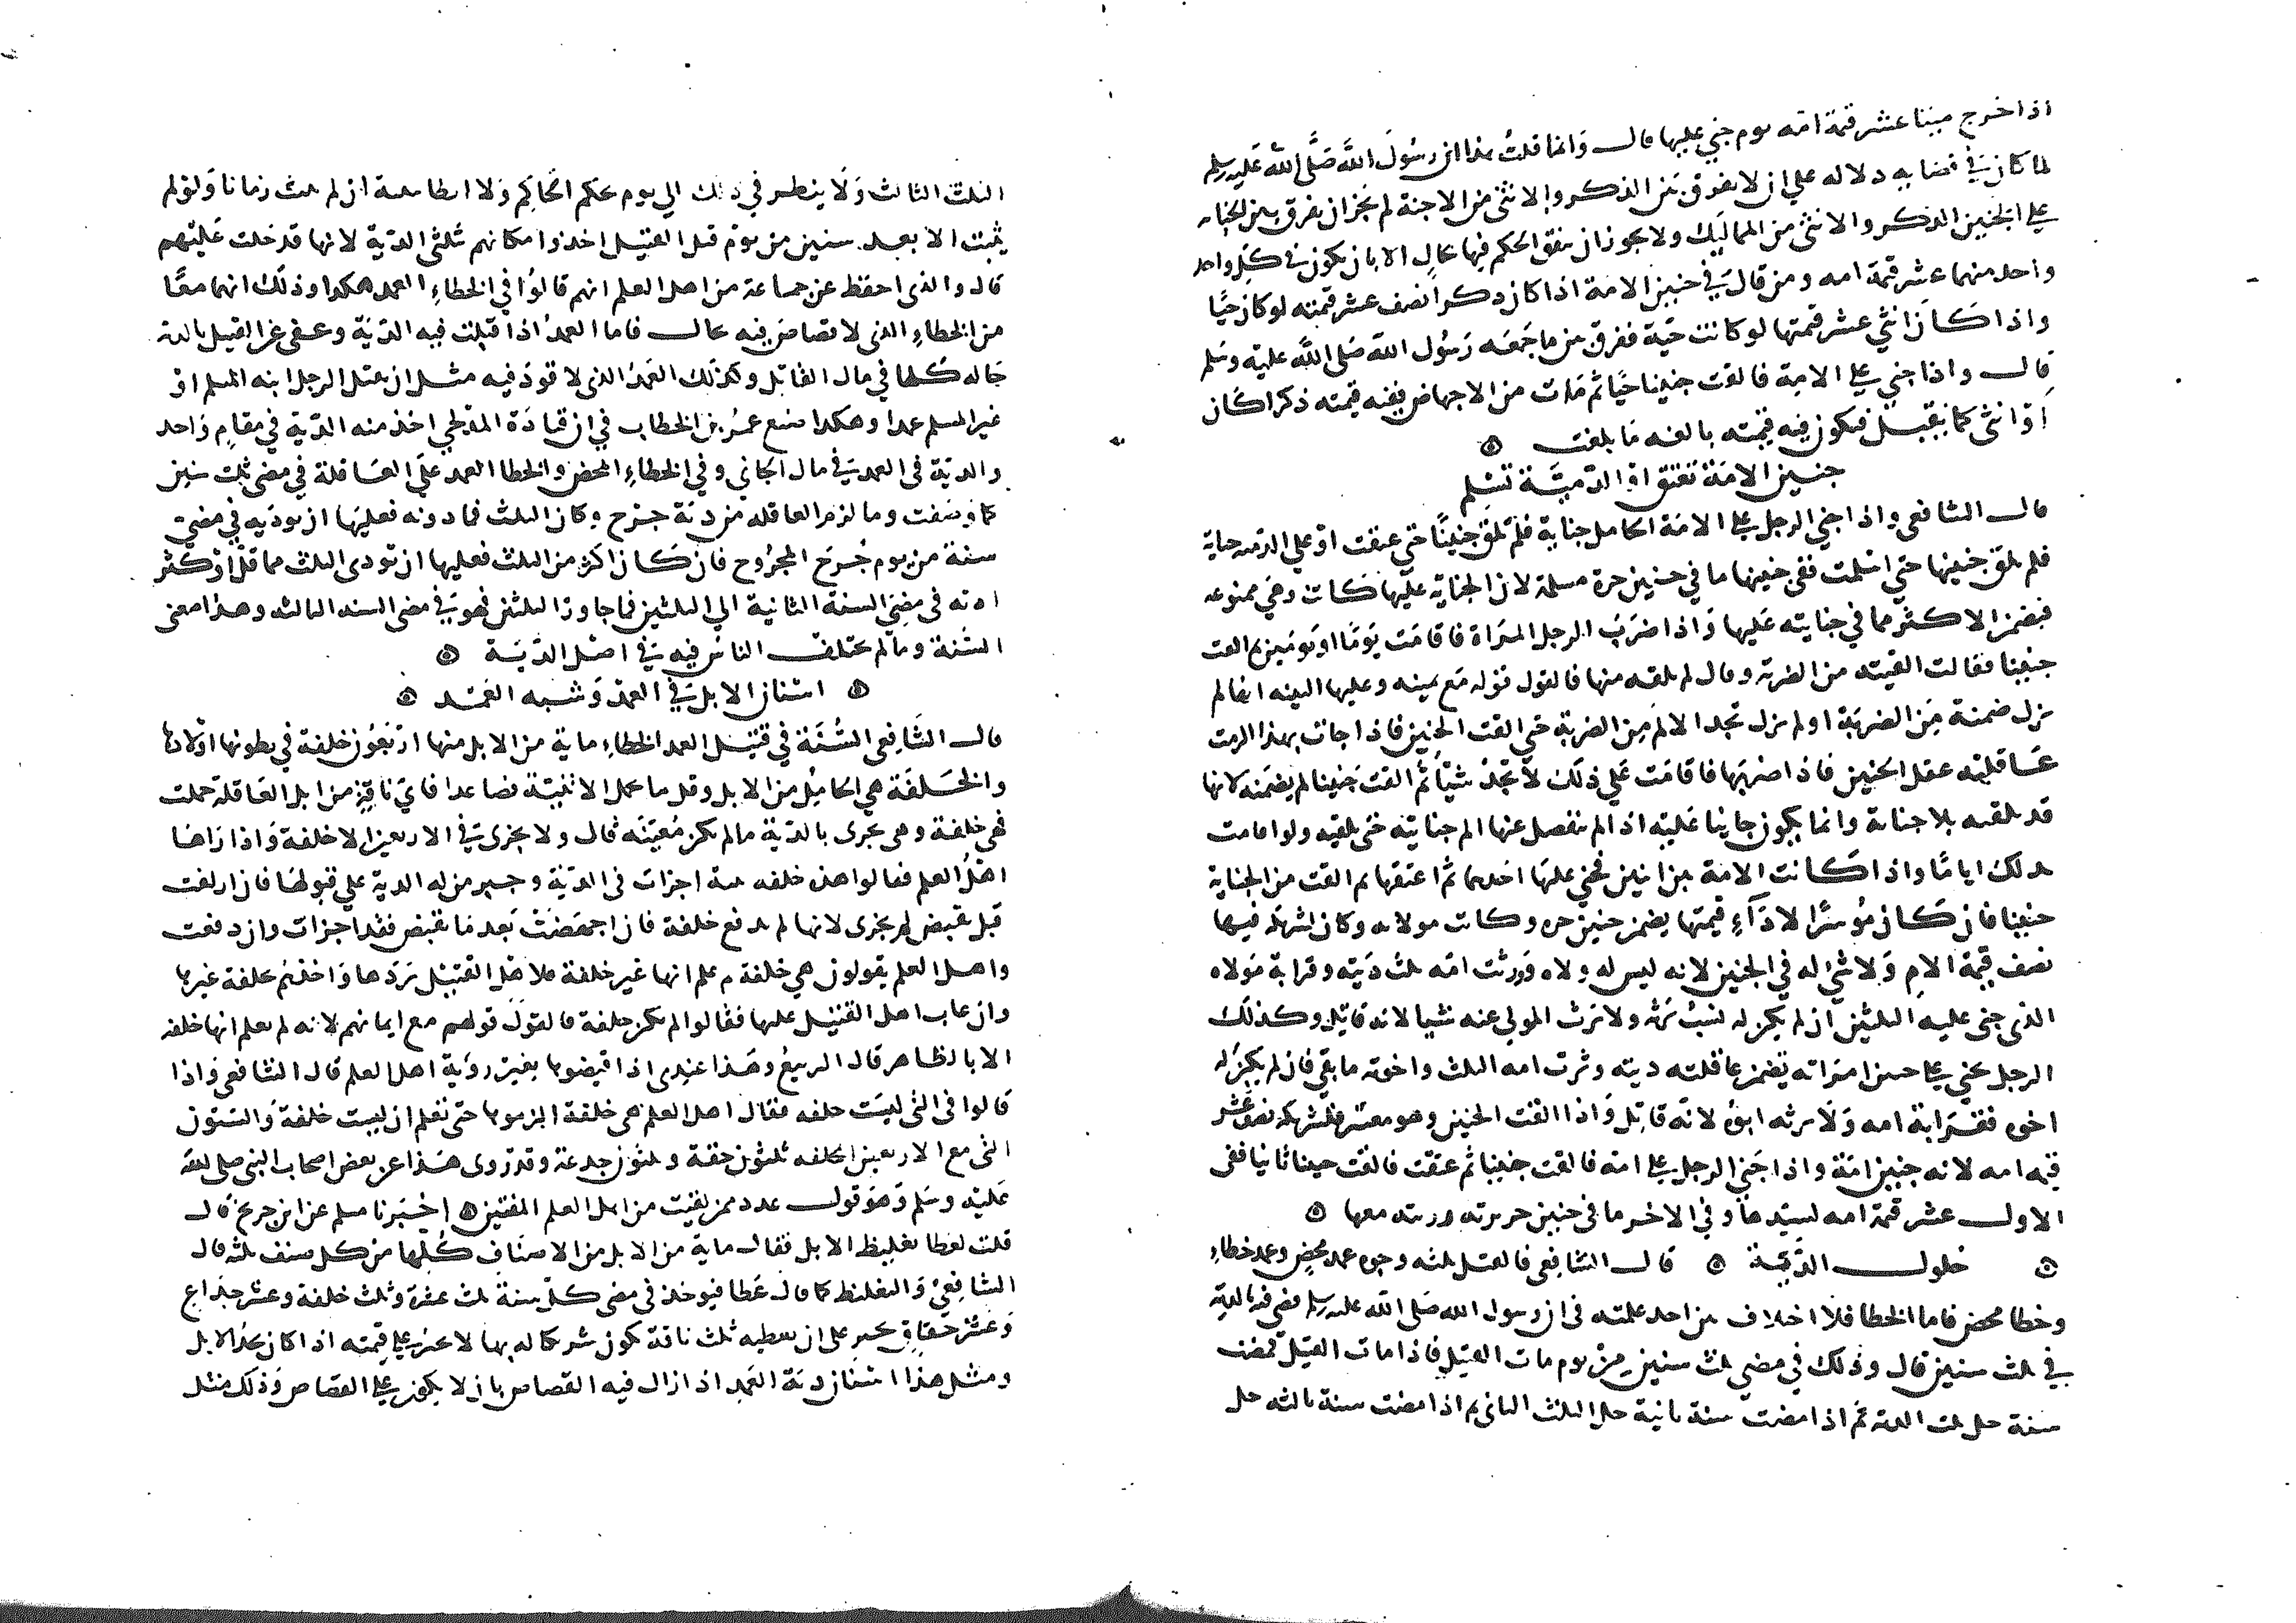 اذا خرج ميتا عشر قيمة امه يوم جني عليها قال وانما قلت هذا ان رسول الله صلى الله عليه وسلم
لما كان في قضايه دلاله علي ان لا يفرق بين الذكر والانثى من الاجنة لم يجز ان يفرق بين الجنايه
علي الجنين الذكر والانثى من المماليك ولا يجوز ان يتفق الحكم فيها بحال الا بان يكون في كل واحد
واحد منهما عشر قيمة امه ومن قال في جنين الامة اذا كان ذكرا نصف عشر قيمته لو كان حيا
واذا كان انثي عشر قيمتها لو كانت حية ففرق بين ما جمعه رسول الله صلى الله عليه وسلم
قال واذا جني علي الامة فالقت جنينا حيا ثم مات من الاجهاض ففيه قيمته ذكرا كان
او انثى كما يقتل فيكون فيه قيمته بالغه ما بلغت
جنين الامة تعتق او الذمية تسلم
قال الشافعي واذا جني الرجل علي الامة الحامل جناية فلم تلق جنينا حتي عتقت او علي الذميه جناية
فلم تلق جنينها حتي اسلمت ففي جنينها ما في جنين حرة مسلمة لان الجناية عليها كانت وهي ممنوعه
فيضمن الاكثر مما في جنايته عليها واذا ضرب الرجل المراة فاقامت يوما او يومين ثم القت
جنينا فقالت القيته من الضربه وقال لم تلقه منها فالقول قوله مع يمينه وعليها البينه انها لم
تزل ضمنة من الضربة او لم تزل تجد الالم من الضربة حتي القت الجنين فاذا جات بهذا الزمت
عاقلته عقل الجنين فاذا ضربها فاقامت علي ذلك لا تجد شيئا ثم القت جنينا لم يضمنه لانها
قد تلقيه بلا جناية وانما يكون جانيا عليه اذا لم ينفصل عنها الم جنايته حتي تلقيه ولو اقامت
بذلك اياما واذا كانت الامة بين اثنين فجني عليها احدهما ثم اعتقها ثم القت من الجناية
جنينا فان كان موسرا لاداء قيمتها يضمن جنين حره وكانت مولاته وكان لشريكه فيها
نصف قيمة الام ولا شي له في الجنين لانه ليس له ولاه وورثت امه ثلث ديته وقرابة مولاه
الذي جني عليه الثلثين ان لم يكن له نسب يرثه ولا يرث المولي عنه شيا لانه قاتل وكذلك
الرجل يجني علي جنين امراته تضمن عاقلته ديته وترث امه الثلث واخوته ما بقي فان لم يكن له
اخوه فقرابة امه ولا يرثه ابوه لانه قاتل واذا القت الجنين وهو معسر فلشريكه نصف عشر
قيمه امه لانه جنين امة واذا جني الرجل علي امة فالقت جنينا ثم عتقت فالقت جنينا ثانيا ففي
الاول عشر قيمة امه لسيدها وفي الاخر ما في جنين حر يرثه ورثته معها
حلول الدية قال الشافعي فالقتل ثلثه وجوه عمد محض وعمد خطاء
وخطا محض فاما الخطا فلا اختلاف بين احد علمته في ان رسول الله صلى الله عليه وسلم قضي فيه بالدية
في ثلث سنين قال وذلك في مضي ثلث سنين من يوم مات القتيل فاذا مات القتيل فمضت
سنة حل ثلث الديه ثم اذا مضت سنة ثانية حل الثلث الثاني ثم اذا مضت سنة ثالثه حل
الثلث الثالث ولا ينظر في ذلك الي يوم يحكم الحاكم ولا ابطا ببينة ان لم تثبت زمانا ولو لم
يثبت الا بعد سنين من يوم قتل القتيل اخذوا مكانهم ثلثي الدية لانها قد حلت عليهم
قال والذي احفظ عن جماعة من اهل العلم انهم قالوا في الخطاء العمد هكذا وذلك انهما معا
من الخطاء الذي لا قصاص فيه بحال فاما العمد اذا قبلت فيه الدية وعفي عن القتيل بالديه
حاله كلها في مال القاتل وكذلك العمد الذي لا قود فيه مثل ان يقتل الرجل ابنه المسلم او
غير المسلم عمدا وهكذا صنع عمر بن الخطاب في ابن قتادة المدلجي اخذ منه الدية في مقام واحد
والدية في العمد في مال الجاني وفي الخطاء المحض والخطا العمد علي العاقلة في مضي ثلث سنين
كما وصفت وما لزم العاقله من دية جرح وكان الثلث فما دونه فعليها ان توديه في مضي
سنة من يوم جرح المجروح فان كان اكثر من الثلث فعليها ان تودي الثلث مما قل او كثر
ادته في مضي السنة الثانية الي الثلثين فما جاوز الثلثين فهو في مضي السنه الثالثه وهذا معنى
السنة وما لم يختلف الناس فيه في اصل الدية
اسنان الابل في العمد وشبه العمد
قال الشافعي السنة في قتيل العمد الخطاء ماية من الابل منها اربعون خلفة في بطونها اولادها
والخلفة هي الحامل من الابل وقل ما تحمل الا ثنية فصاعدا فاي ناقة من ابل العاقلة حملت
فهي خلفة وهي تجزي بالدية ما لم تكن معيبه قال ولا يجزي في الاربعين الا خلفة واذا راها
اهل العلم فقالوا هذه خلفه ثنية اجزات في الدية وجبر من له الدية علي قبولها فان ازلقت
قبل تقبض لم يجزي لانها لم تدفع خلفة فان اجهضت بعد ما تقبض فقد اجزات وان دفعت
واهل العلم يقولون هي خلفة ثم علم انها غير خلفة فلاهل القتيل ردها واخذهم بخلفة غيرها
وان غاب اهل القتيل عليها فقالوا لم تكن خلفة فالقول قولهم مع ايمانهم لانه لم يعلم انها خلفه
الا بالظاهر قال الربيع وهذا عندي اذا قبضوها بغير روية اهل العلم قال الشافعي واذا
قالوا في التي ليست خلفه فقال اهل العلم هي خلفة الزموها حتي نعلم ان ليست خلفة والستون
التي مع الاربعين الخلفه ثلثون حقة وثلثون جذعة وقد روي هذا عن بعض اصحاب النبي صلى الله
عليه وسلم وهو قول عدد ممن لقيت من اهل العلم المفتين اخبرنا مسلم عن ابن جريج قال
قلت لعطا تغليظ الابل فقال ماية من الابل من الاصناف كلها من كل صنف ثلثه قال
الشافعي والتغليظ كما قال عطا فيوخذ في مضي كل سنة ثلث عشرة وثلث خلفة وعشر جذاع
وعشر حقاق يجبر علي ان يعطيه ثلث ناقة يكون شركا له بها لا يجبر علي قيمته اذا كان يجد الابل
ومثل هذا اسنان دية العمد اذا زال فيه القصاص بان لا يكون علي القصاص وذلك مثل